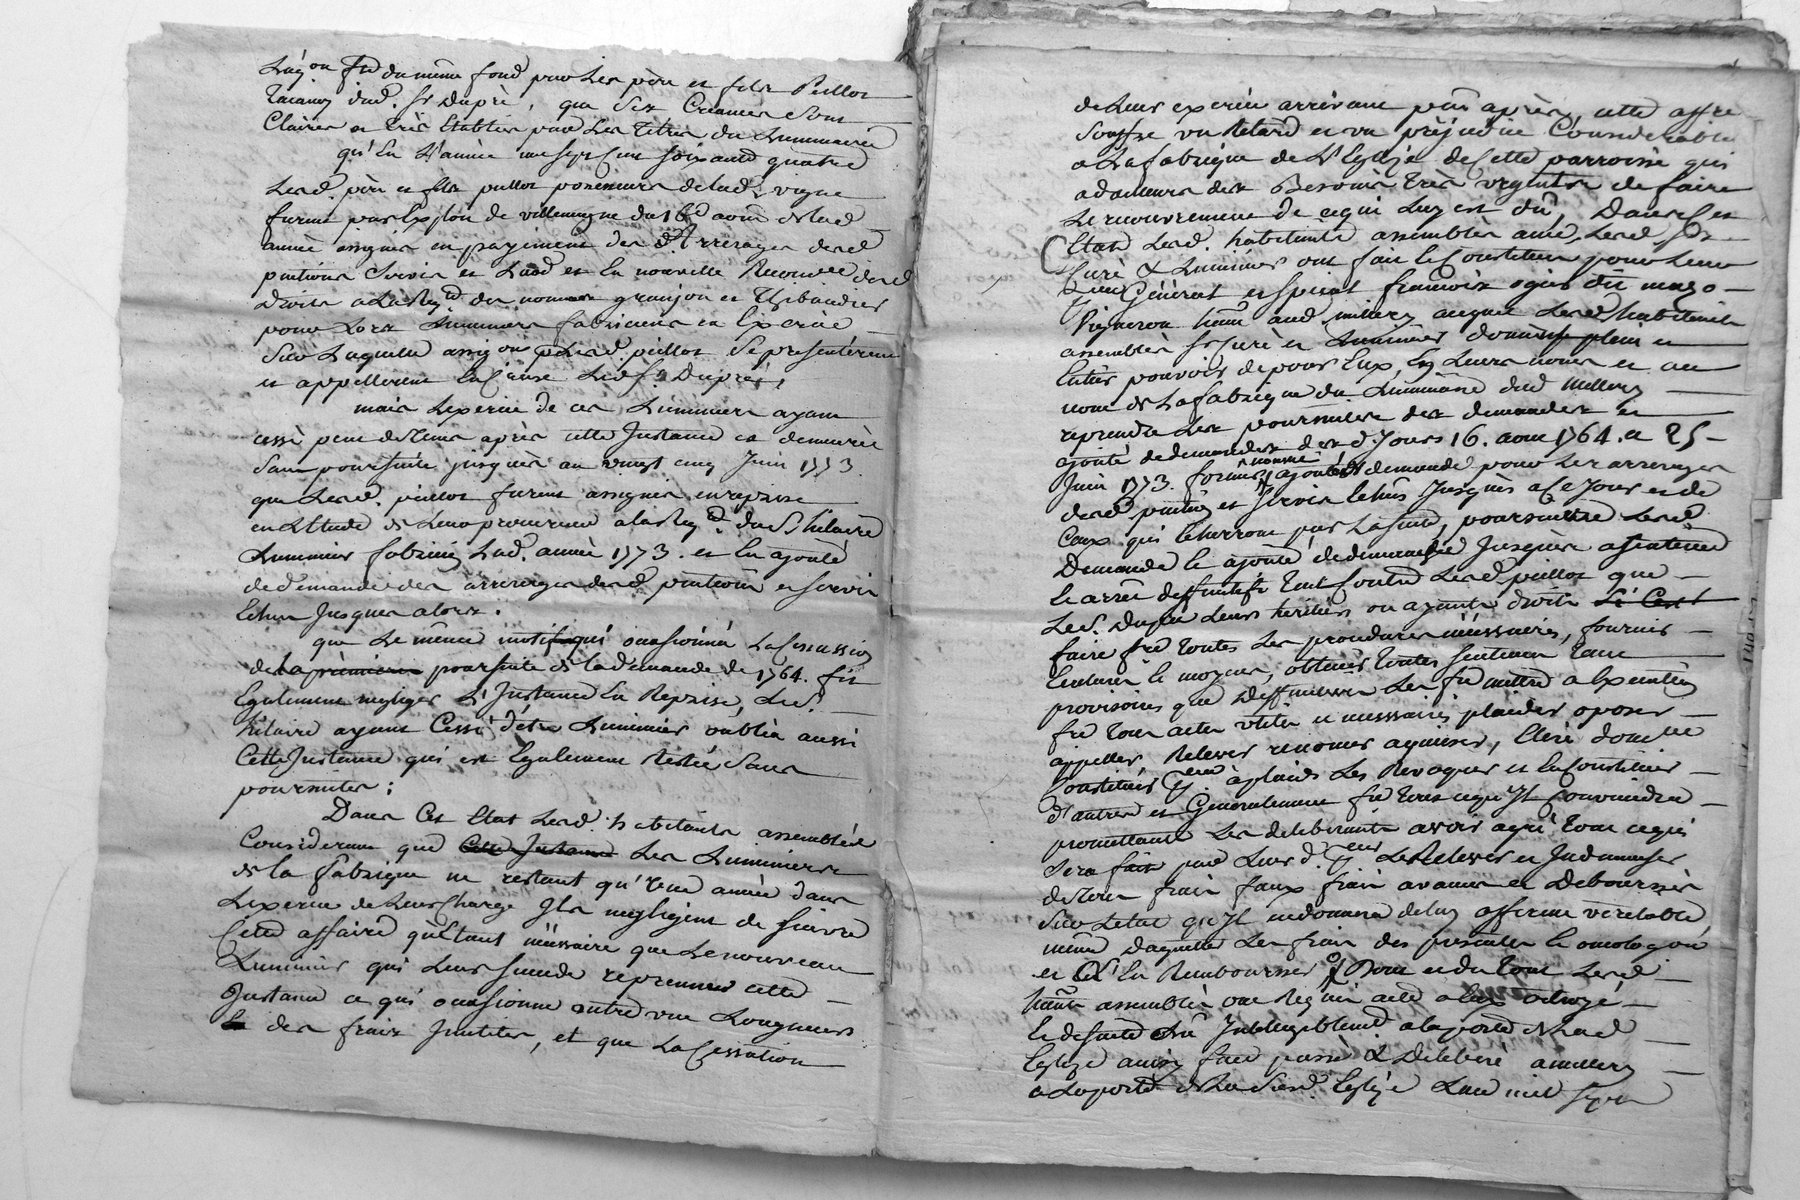 du même fond par les père et fils Peillot
dud. Sr Dupré, que ses Creances sont
Claires et très Etablies par les titres du Luminaire
qu'en L'année mil sept Cent soixante quatre
Lesd. père et fils peillot possesseurs delad. vigne
furent par Exploit de villemagne du 16e aout de lad
année assignés en payement des Arrerages desd
pentions Servis et Laod et En nouvelle Reconnce desd
droits a La Reqte des nommés granjon et Thibaudier
pour Lors Luminiers fabriciens en Exercice
Sur Laquelle assigon Lesd. peillot Se presenterent
et appellerent En Cause Led. Sr. Dupré,
mais Lexercice de ces Luminiers ayant
cessé peu detems après cette Instance est demeurée
Sans poursuite jusques au vingt cinq Juin 1773.
que Lesd. peillot furent assignés en reprise
en L'Etude de Leur procureur a la Reqte du S. hilaire
Luminier fabricien Lad. année 1773. et En ajouté
de demande des arrerages desd pentions et servis
Echus Jusques alors.
que Le même motif qui ocasionna La Cessation
de La premiere poursuite de la demande de 1764. fit
Egalement negliger L'Instance En Reprise, Led S.
hilaire ayant Cessé d'être Luminier oublia aussi
Cette Instance qui est Egalement Restée Sans
poursuites;
Dans Cet Etat Lesd. habitants assemblés
Considerant que Cette Instance Les Luminiers
de la fabrique ne restant qu'une année dans
Lexercice de Leur Charge Ils negligent de suivre
Cette affaire qu'Etant nécessaire que Le nouveau
Luminier qui Leur succede reprenne cette
Instance ce qui ocasionne outre une Longueur
des fraix Inutiles, et que La Cessation
de Leur exercice arrivant peu après, cette affre
souffre un Retard et un préjudice Considerable
a La fabrique de L'Eglize de Cette parroisse qui
a d'ailleurs des Besoins très urgents de faire
Le recouvrement de ce qui Luy est dû, Dans Cet
Etat Lesd. habitants assemblés avec Lesd Srs
Curé & Luminiers ont fait & Constitué pour Leur
Géneral et spécial francois ogier dit mazo
Vigneron hant aud millery auquel Lesd habitants
assemblés Sr Curé et Luminiers donnent plein et
Entier pouvoir de pour Eux, En Leurs noms et au
nom de La fabrique du Luminaire dud Millery
reprendre Les poursuites des demandes et
ajouté de demandes des d. Jours 16. aout 1764. et 25
Juin 1773. former nouvel ajouté de demande pour Les arrerages
desd pentions et Servis Echus Jusques a Ce Jour et de
Ceux qui Echerront par La suite, poursuivre Lesd
Demande & ajouté de demandes Jusques a sentence
& arrêt deffinitifs tant contre Lesd. peillot que
Led S. Dupré Leurs heritiers ou ayants droits
faire fre toutes Les procedures nécessaires, fournir
Ecritures & moyens, obtenir toutes sentences tant
provisoires que Deffinitives Les fre mettre a Execution
fre tous actes utiles et necessaires plaider oposer
appeller Relever renoncer aquiescer, Elire domicile
Constituer preur a plaids Les Revoquer et En Constituer
d'autres et Generalement fre tout ce qu'Il Conviendra
promettant Les deliberants avoir agréé tout ce qui
sera fait par Leur d. preur Le Relever et Indamniser
de tous frais faux frais avances et Deboursés
Sur Letat qu'Il en donnera deluy affirmé veritable
même daquitter Les frais des presentes & omologaon
et L'En Rembourser Dont et du tout Lesd
hants assemblés ont Requis acte a Eux octroyé
& de suite Lû Intelligiblemt a la porte de Lad
Eglize ainsy fait passé & Deliberé a millery
a La porte de La Susd. Eglize L'an mil sept